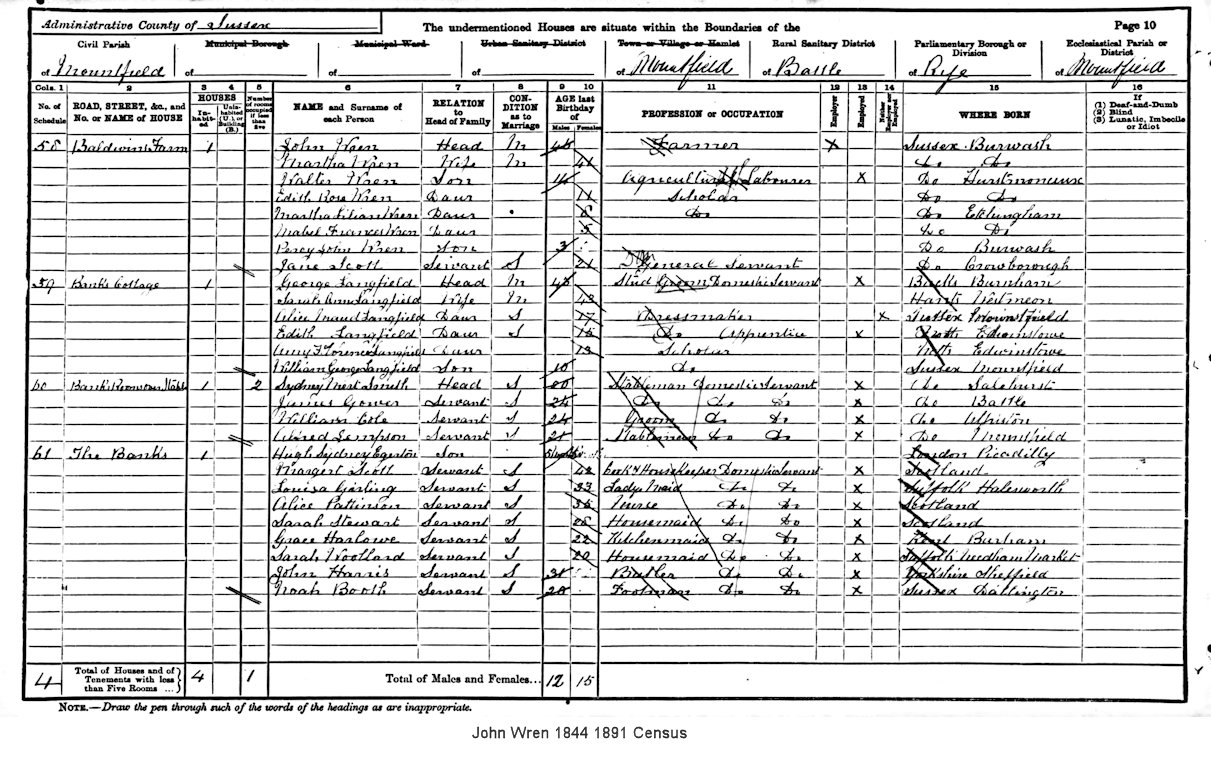 Administrative County of Sussex
The undermentioned Houses are situate within the Boundaries of the
Page 10
Civil Parish Municipal Borough Municipal Ward Urban Sanitary District Town or Village or Hamlet Rural Sanitary District Parliamentary Borough or Division Ecclesiastical Parish or District
of Mountfield of of of of Mountfield of Battle of Rye of Mountfield
Cols. 1 2 3 4 5 6 7 8 9 10 11 12 13 14 15 16
No. of Schedule ROAD, STREET, &c., and No. or NAME of HOUSE HOUSES Inhabited Uninhabited (U.), or Building (B.) Number of rooms occupied if less than five NAME and Surname of each Person RELATION to Head of Family CONDITION as to Marriage AGE last Birthday of Males Females PROFESSION or OCCUPATION Employer Employed Neither Employer nor Employed WHERE BORN If (1) Deaf-and-Dumb (2) Blind (3) Lunatic, Imbecile or Idiot
58 Baldwins Farm 1 John Wren Head M 46 Farmer X Sussex Burwash
Martha Wren Wife M 41 Do Do
Walter Wren Son 14 Agricultural Labourer X Do Hurstmonceux
Edith Rose Wren Daur 11 Scholar Do Do
Martha Lilian Wren Daur 6 Do Do Etchingham
Mabel Frances Wren Daur 5 Do Do
Percy John Wren Son 3 Do Burwash
Jane Scott Servant S 21 General Servant Do Crowborough
59 Banks Cottage 1 George Langfield Head M 45 Stud Groom Domestic Servant X Bucks Burnham
Sarah Ann Langfield Wife M 43 Hants
Alice Maud Langfield Daur S 17 Dressmaker X Sussex Mountfield
Edith Langfield Daur S 15 Do Apprentice X Notts Edwinstowe
Amy Florence Langfield Daur 13 Scholar Notts Edwinstowe
William George Langfield Son 10 Do Sussex Mountfield
60 Banks Room over Stable 1 2 Sydney Smith Head S Stableman Domestic Servant X Do Salehurst
James Gower Servant S 24 Do Do Do X Do Battle
William Cole Servant S 24 Groom Do Do X Do Alfriston
Alfred Servant S 21 Stableman Do Do X Do Mountfield
61 The Banks 1 Hugh Sydney Egerton Son London Picadilly
Margaret Scott Servant S 42 Cook & Housekeeper Domestic Servant X Scotland
Louisa Girling Servant S 33 Ladys Maid Do Do X Suffolk Halesworth
Alice Pattinson Servant S 35 Nurse Do Do X Scotland
Sarah Stewart Servant S 28 Housemaid Do Do X Scotland
Grace Harlowe Servant S 22 Kitchenmaid Do Do X Kent Burham
Sarah Woollard Servant S 20 Housemaid Do Do X Suffolk Needham Market
John Harris Servant S 31 Butler Do Do X Yorkshire Sheffield
Noah Booth Servant S 20 Footman Do Do X Sussex Dallington
4 Total of Houses and of Tenements with less than Five Rooms ... 4 1 Total of Males and Females... 12 15
NOTE.—Draw the pen through such of the words of the headings as are inappropriate.
John Wren 1844 1891 Census